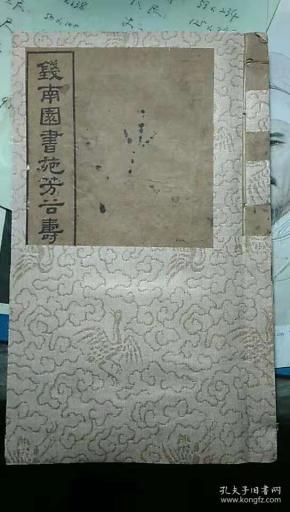 錢南園書施芳谷壽
孔夫子旧书网
www.kongfz.com